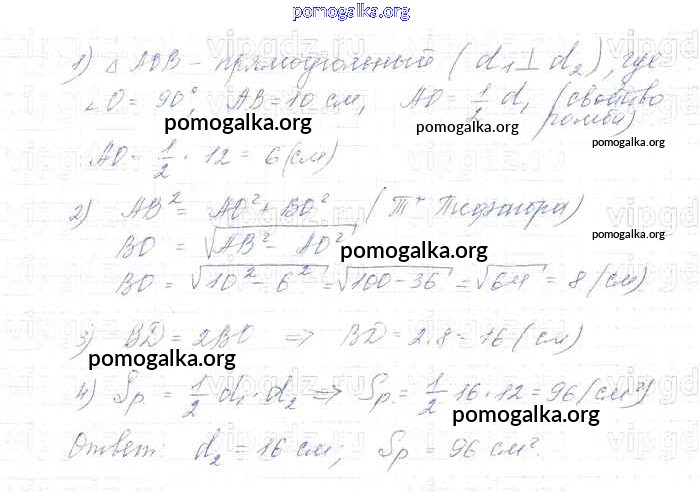 pomogalka.org
1) △ AOB – прямоугольный (d₁ ⊥ d₂), где
∠O = 90°, AB = 10 см, AO = 1/2 d₁ (свойство
ромба)
pomogalka.org
pomogalka.org
AO = 1/2 · 12 = 6 (см)
2) AB² = AO² + BO² (Т^а Пифагора)
pomogalka.org
BO = √AB² – AO²
pomogalka.org
BO = √10² – 6² = √100 – 36 = √64 = 8 (см)
3) BD = 2BO ⇒ BD = 2 · 8 = 16 (см)
pomogalka.org
4) Sр = 1/2 d₁ · d₂ ⇒ Sр = 1/2 · 16 · 12 = 96 (см²)
pomogalka.org
Ответ: d₂ = 16 см; Sр = 96 см².